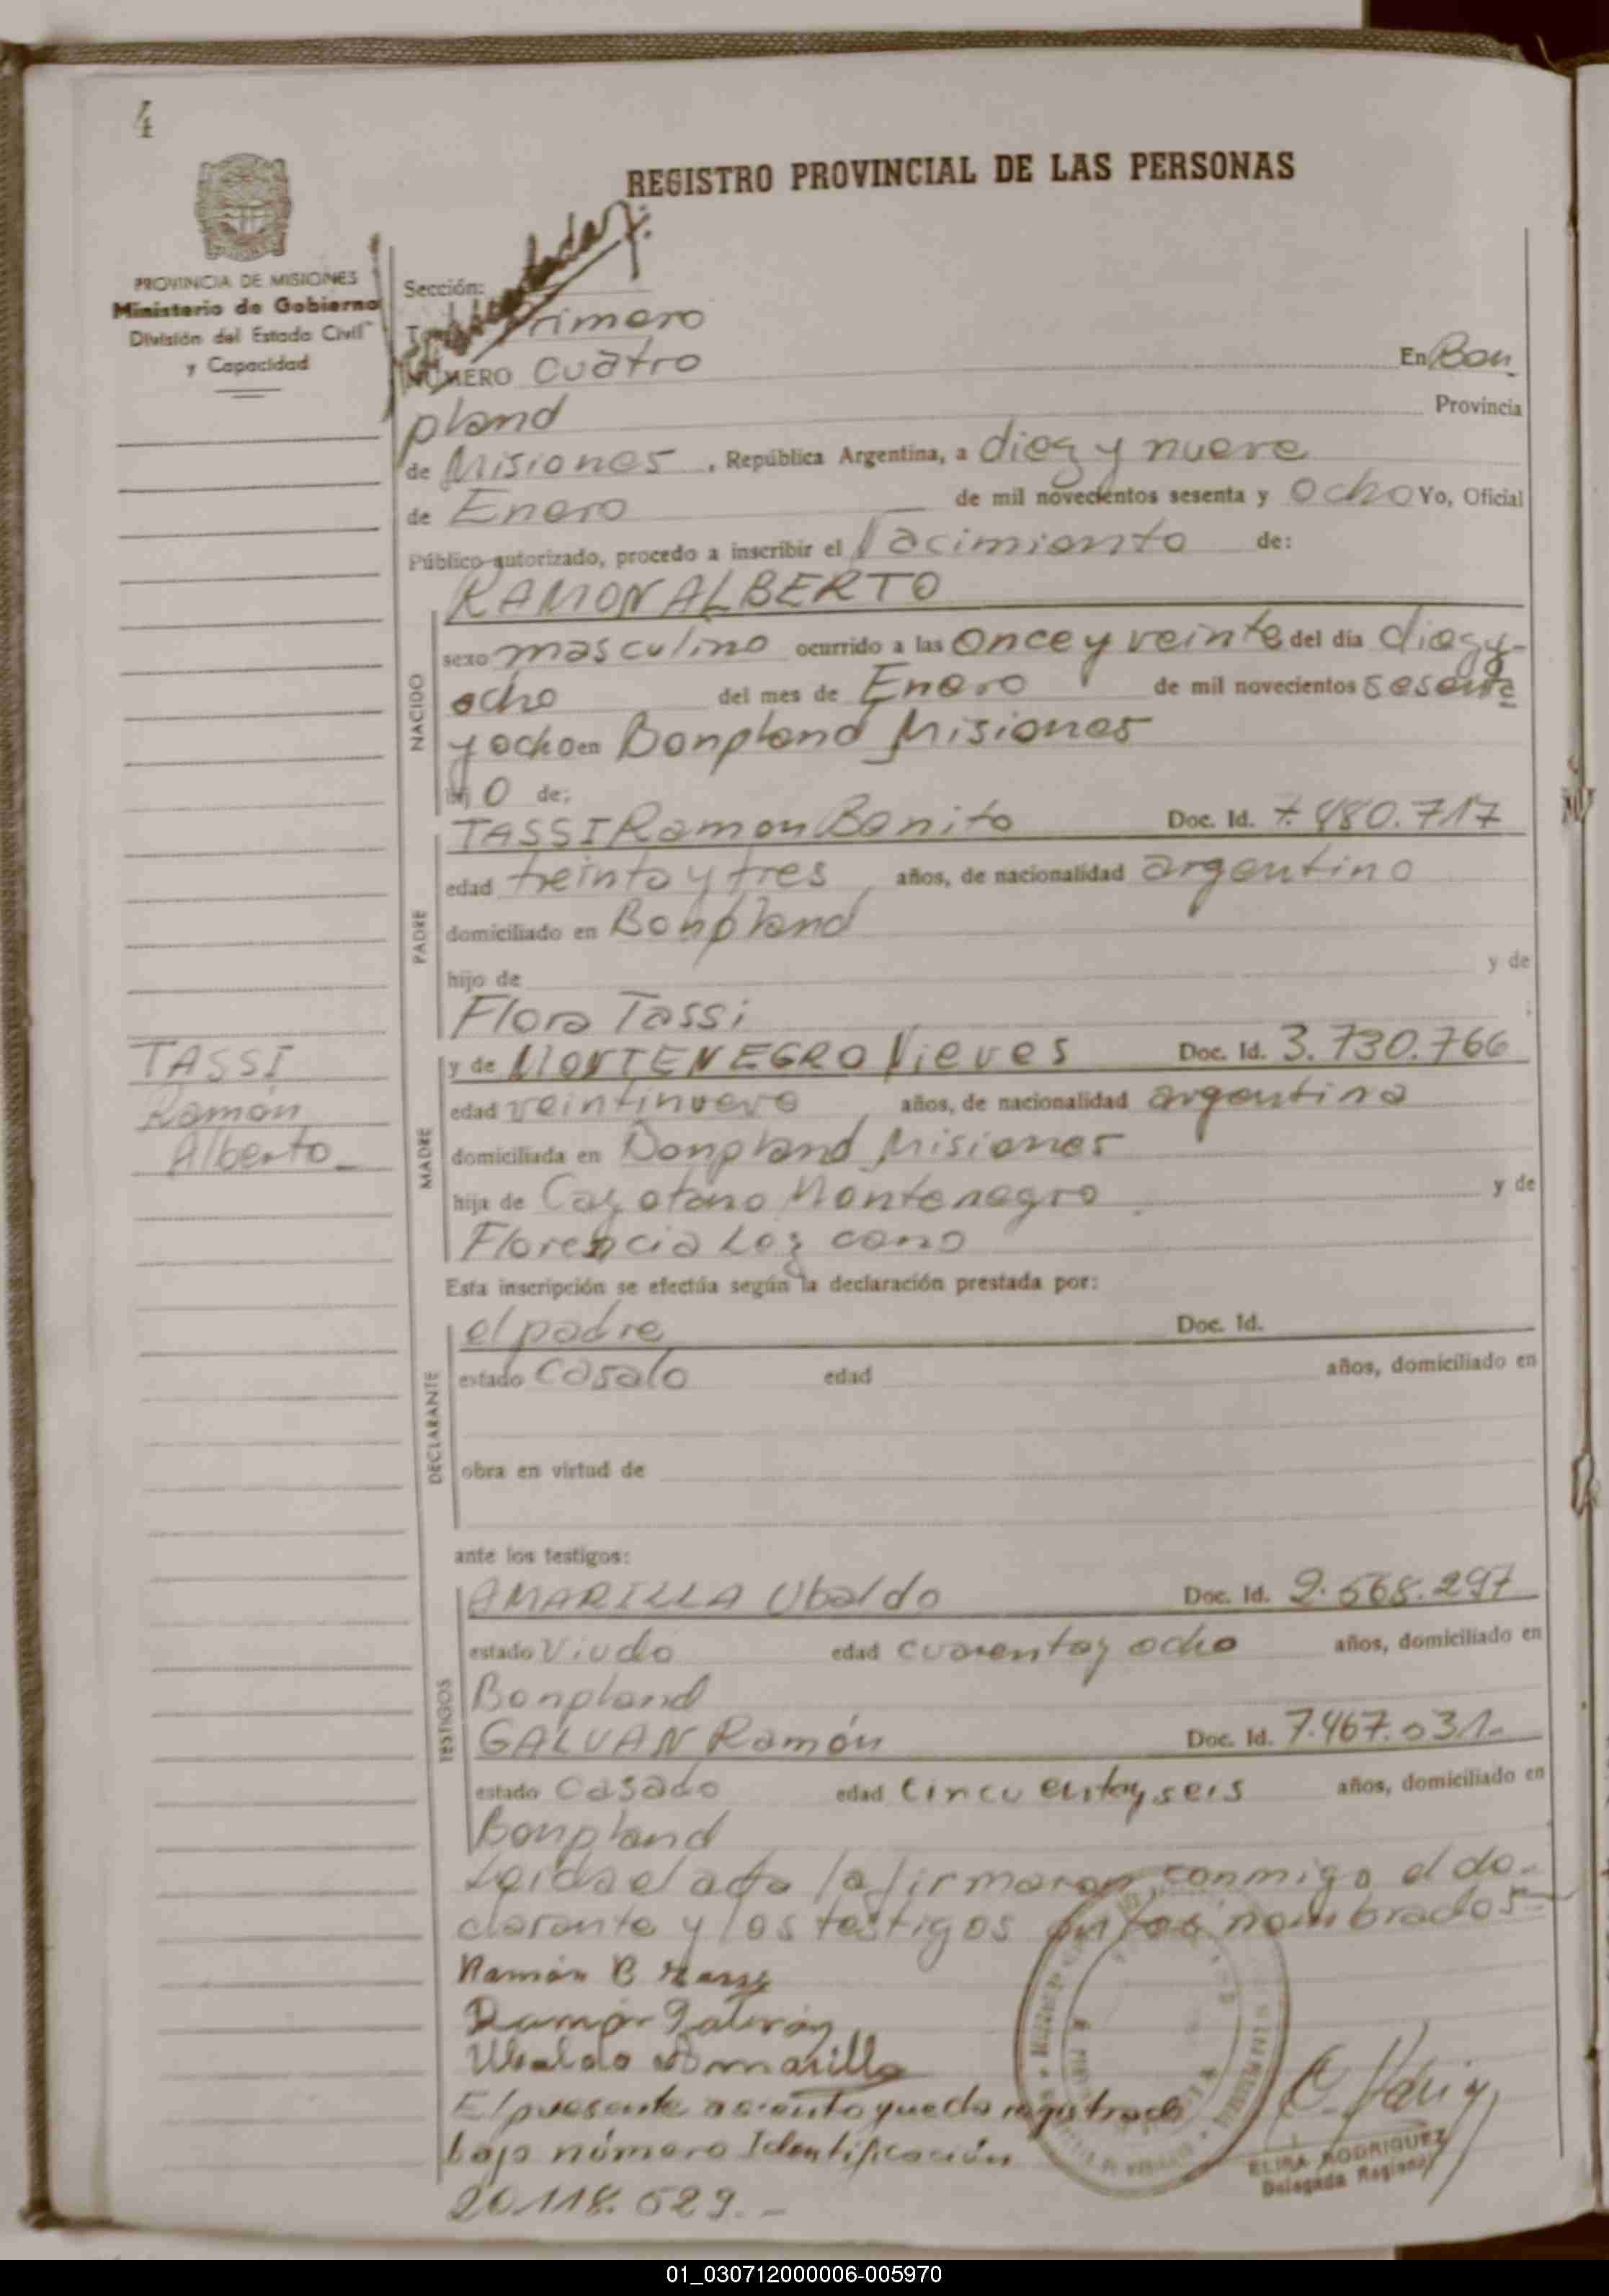 4
REGISTRO PROVINCIAL DE LAS PERSONAS
PROVINCIA DE MISIONES
Ministerio de Gobierno
División del Estado Civil
y Capacidad
Sección:
Primero
NÚMERO Cuatro En Bon
pland Provincia
de Misiones, República Argentina, a diez y nueve
de Enero de mil novecientos sesenta y ocho Yo, Oficial
Público autorizado, procedo a inscribir el Nacimiento de:
RAMON ALBERTO
NACIDO
sexo masculino ocurrido a las once y veinte del día diez y
ocho del mes de Enero de mil novecientos sesenta
y ocho en Bonpland Misiones
hij o de:
PADRE
TASSI Ramon Benito Doc. Id. 7.480.717
edad treinta y tres años, de nacionalidad argentino
domiciliado en Bonpland
hijo de y de
Flora Tassi
TASSI
Ramón
Alberto
MADRE
y de MONTENEGRO Nieves Doc. Id. 3.730.766
edad veintinueve años, de nacionalidad argentina
domiciliada en Bonpland Misiones
hija de Cayetano Montenegro y de
Florencia Lezcano
Esta inscripción se efectúa según la declaración prestada por:
DECLARANTE
el padre Doc. Id.
estado Casalo edad años, domiciliado en
obra en virtud de
ante los testigos:
TESTIGOS
AMARILLA Ubaldo Doc. Id. 2.568.297
estado Viudo edad cuarenta y ocho años, domiciliado en
Bonpland
GALVAN Ramón Doc. Id. 7.467.031.
estado Casado edad cincuenta y seis años, domiciliado en
Bonpland
Leida el acta la firmaron conmigo el de-
clarante y los testigos nombrados
Ramón B
Ramón Galván
Ubaldo Amarilla
El presente asiento queda registrado
bajo número Identificación
20.118.529.-
ELISA RODRIGUEZ
Delegada Regional
01_030712000006-005970